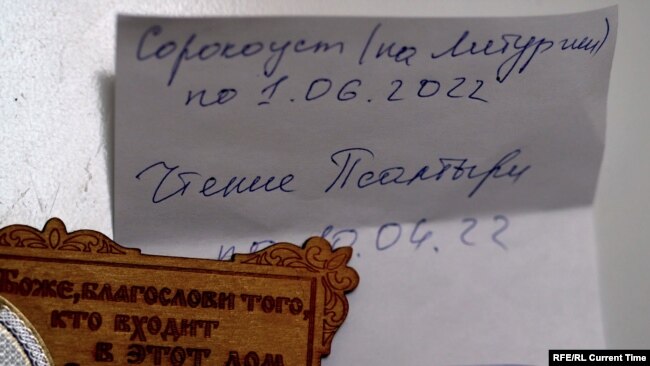 Сорокоуст (на Литургии)
по 1.06.2022
Чтение Псалтыри
по 10.04.22
БОЖЕ, БЛАГОСЛОВИ ТОГО,
КТО ВХОДИТ
В ЭТОТ ДОМ
RFE/RL Current Time